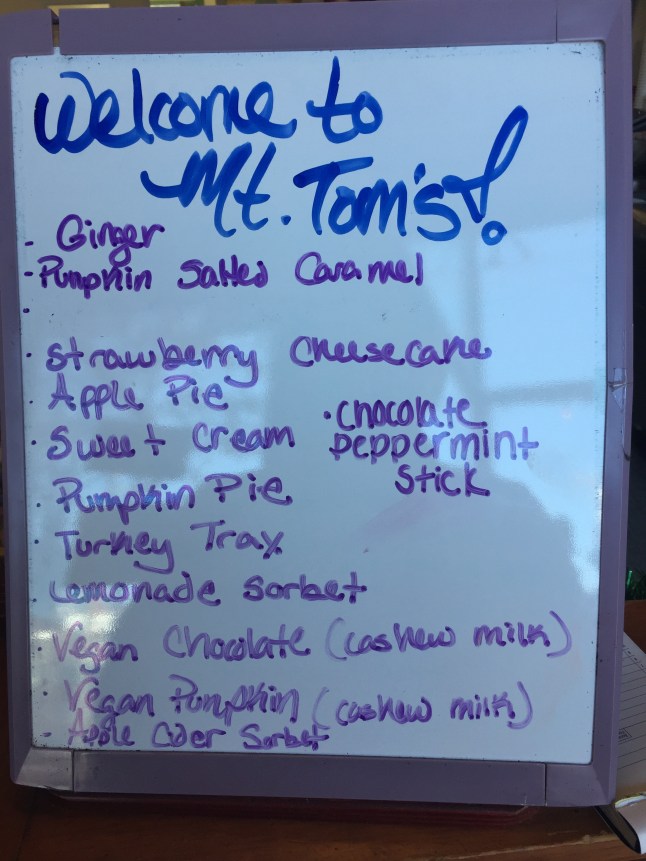 Welcome to
Mt. Tom's!
- Ginger
- Pumpkin Salted Caramel
· Strawberry Cheesecake
· Apple Pie
· Sweet Cream
· Chocolate
peppermint
Stick
· Pumpkin Pie
· Turkey Trax
· Lemonade Sorbet
· Vegan Chocolate (cashew milk)
· Vegan Pumpkin (cashew milk)
- Apple Cider Sorbet